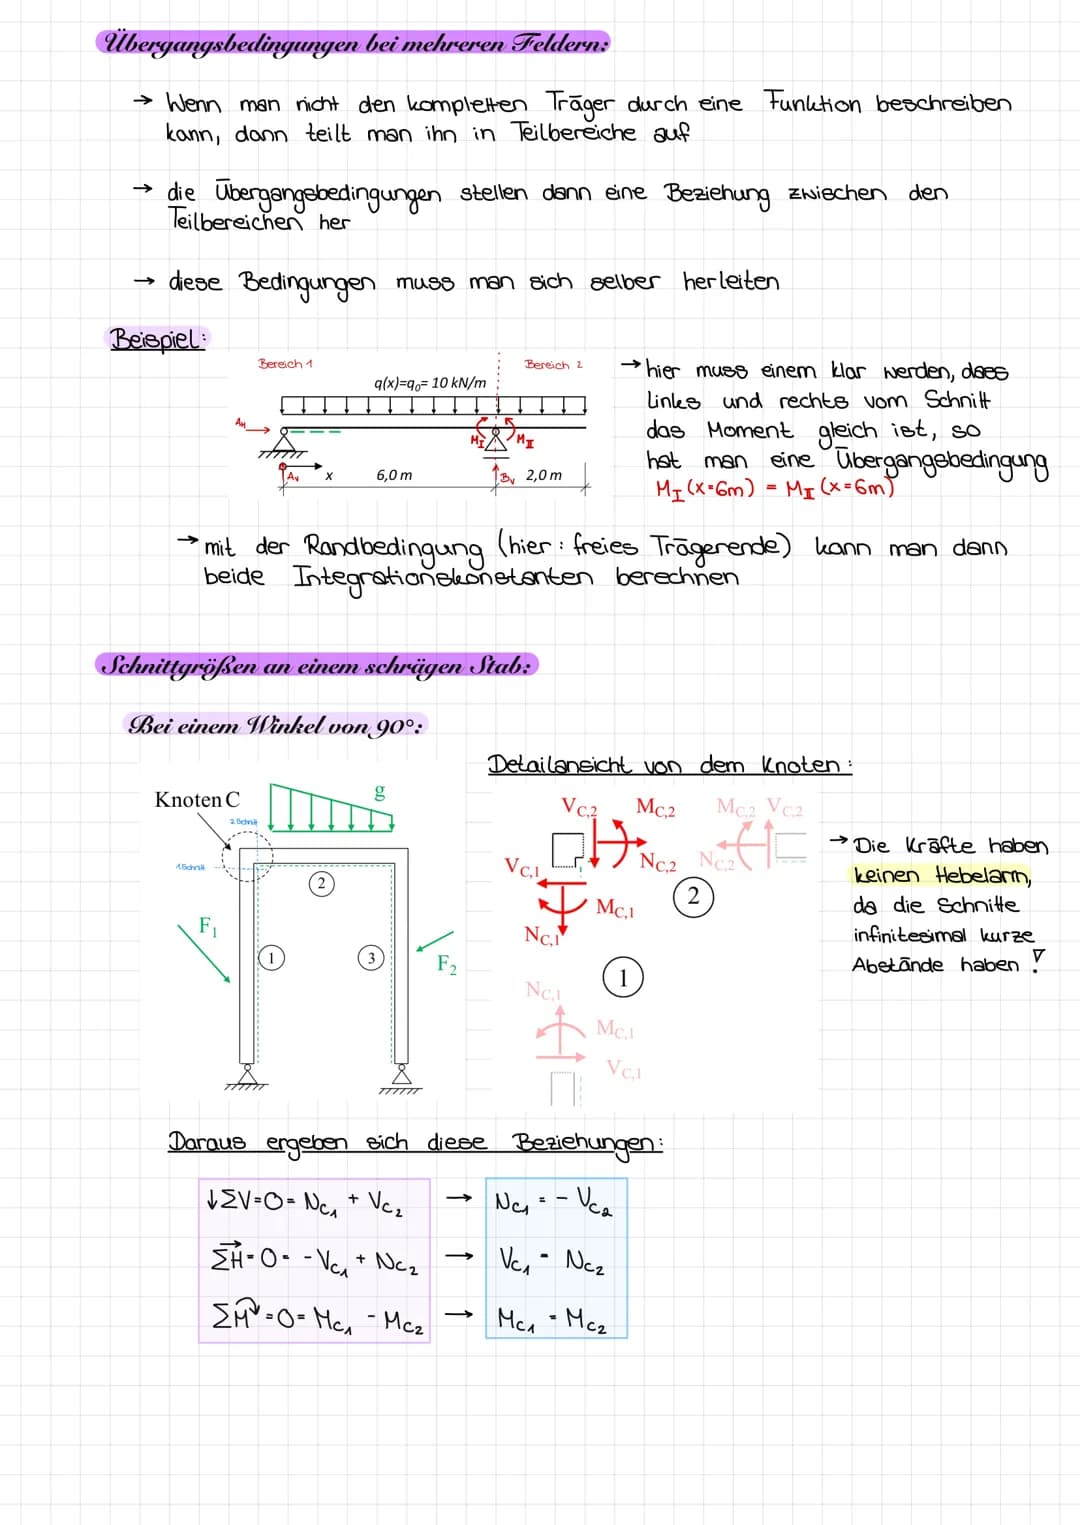 Übergangsbedingungen bei mehreren Feldern:
→ Wenn man nicht den kompletten Träger durch eine Funktion beschreiben
kann, dann teilt man ihn in Teilbereiche auf
→ die Übergangsbedingungen stellen dann eine Beziehung zwischen den
Teilbereichen her
→ diese Bedingungen muss man sich selber herleiten
Beispiel:
Bereich 1
Bereich 2
q(x)=q₀= 10 kN/m
A_H
M_I
M_II
A_V
x
6,0 m
B_V
2,0 m
→ hier muss einem klar werden, dass
links und rechts vom Schnitt
das Moment gleich ist, so
hat man eine Übergangsbedingung
M_I (x=6m) = M_II (x=6m)
→ mit der Randbedingung (hier: freies Trägerende) kann man dann
beide Integrationskonstanten berechnen
Schnittgrößen an einem schrägen Stab:
Bei einem Winkel von 90°:
Knoten C
2. Schnitt
1. Schnitt
g
F₁
F₂
1
2
3
Detailansicht von dem Knoten:
V_C,2 M_C,2
M_C,2 V_C,2
N_C,2 N_C,2
V_C,1
M_C,1
2
N_C,1
1
N_C,1
M_C,1
V_C,1
→ Die Kräfte haben
keinen Hebelarm,
da die Schnitte
infinitesimal kurze
Abstände haben!
Daraus ergeben sich diese Beziehungen:
↓ΣV=0= N_C1 + V_C2 → N_C1 = - V_C2
ΣH=0= -V_C1 + N_C2 → V_C1 = N_C2
ΣM=0= M_C1 - M_C2 → M_C1 = M_C2